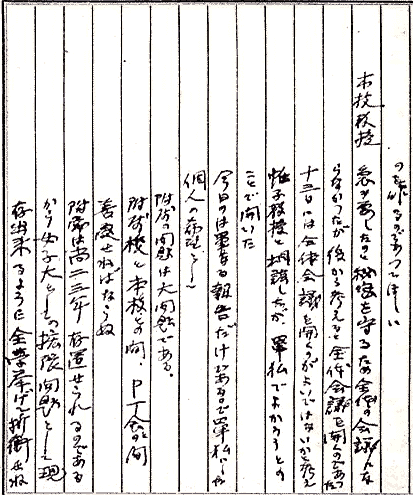 の為作るのであってほしい
本校教授 急を要したので秘密を守るため全体の会議とな
らなかったが後から考えると全体会議を開くのであった
十三日には全体会議を開く方がよいではないかと考え
教授に相談したが、単独でよかろうとの
ことで開いた
今日のは単なる報告だけであるので単独
個人の
附属の問題は大問題である。
附属校と本校との間、PT会との間
善處せねばならぬ
附属は尚二三年存置せられるのである
から女子大としての施設問題として現
存出来るように全学挙げて折衝せね